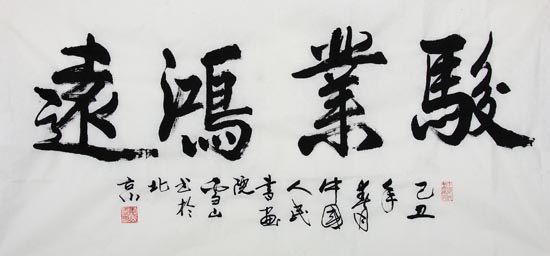 駿業鴻遠
己丑年春月中國人民書画院雪山书於北京